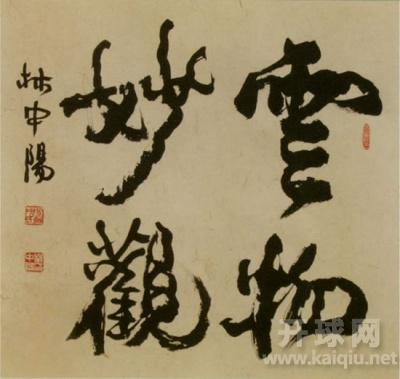 雲物
妙觀
林中陽
开球网
www.kaiqiu.net